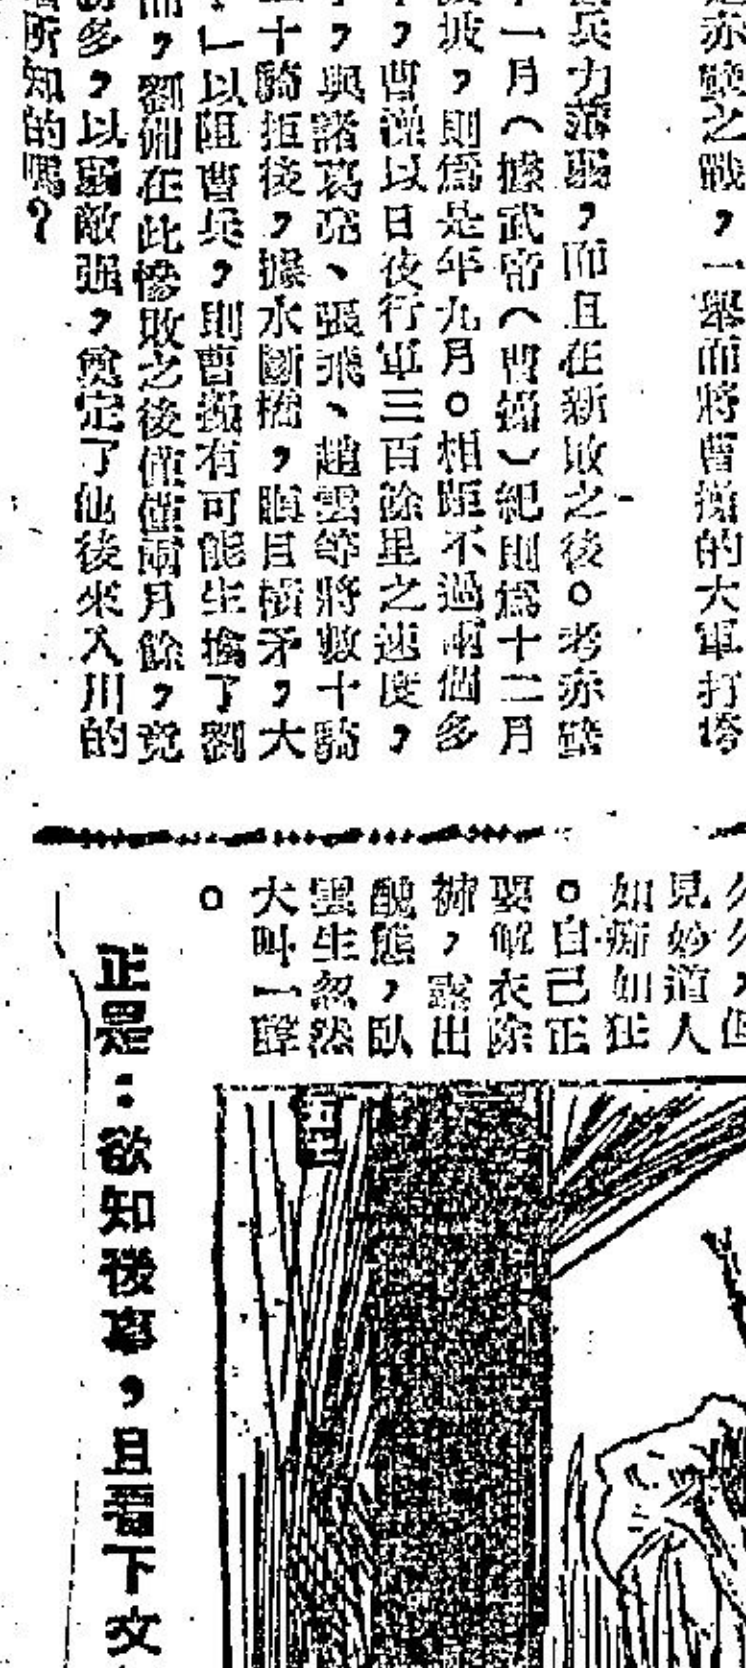 赤壁之戰，一舉而將曹操的大軍打垮
兵力落弱，而且在新敗之後。考赤壁
一月（據武帝（曹操）紀則爲十二月
坡，則爲是年九月。相距不過兩個多
，曹操以日夜行軍三百餘里之速度，
，與諸葛亮、張飛、趙雲等將數十騎
十騎拒後，據水斷橋，瞋目橫矛，大
」以阻曹兵，則曹操有可能生擒了劉
，劉備在此慘敗之後僅僅兩月餘，竟
多，以弱敵强，奠定了他後來入川的
所知的嗎？
久久，但
見妙道人
如癲如狂
。自己正
要解衣除
褲，露出
醜態，臥
雲生忽然
大叫一聲
。
正是：欲知後事，且看下文